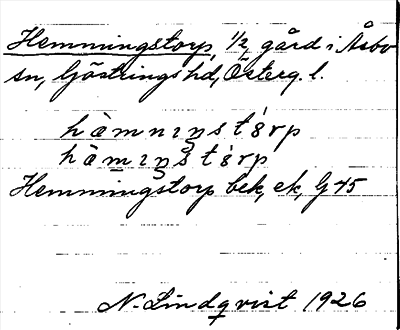 Hemmingstorp, 1/2, gård i Åsbo
sn, Göstrings hd, Österg. l.
hàmnıŋstórp
hàmıŋstórp
Hemmingstorp bek, ek, G 45
N. Lindqvist 1926